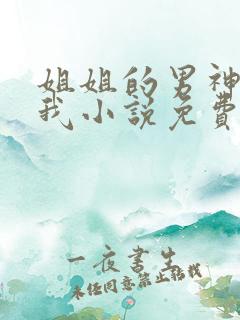 姐姐的男神
我小說免費
一夜書生
未经同意禁止转载